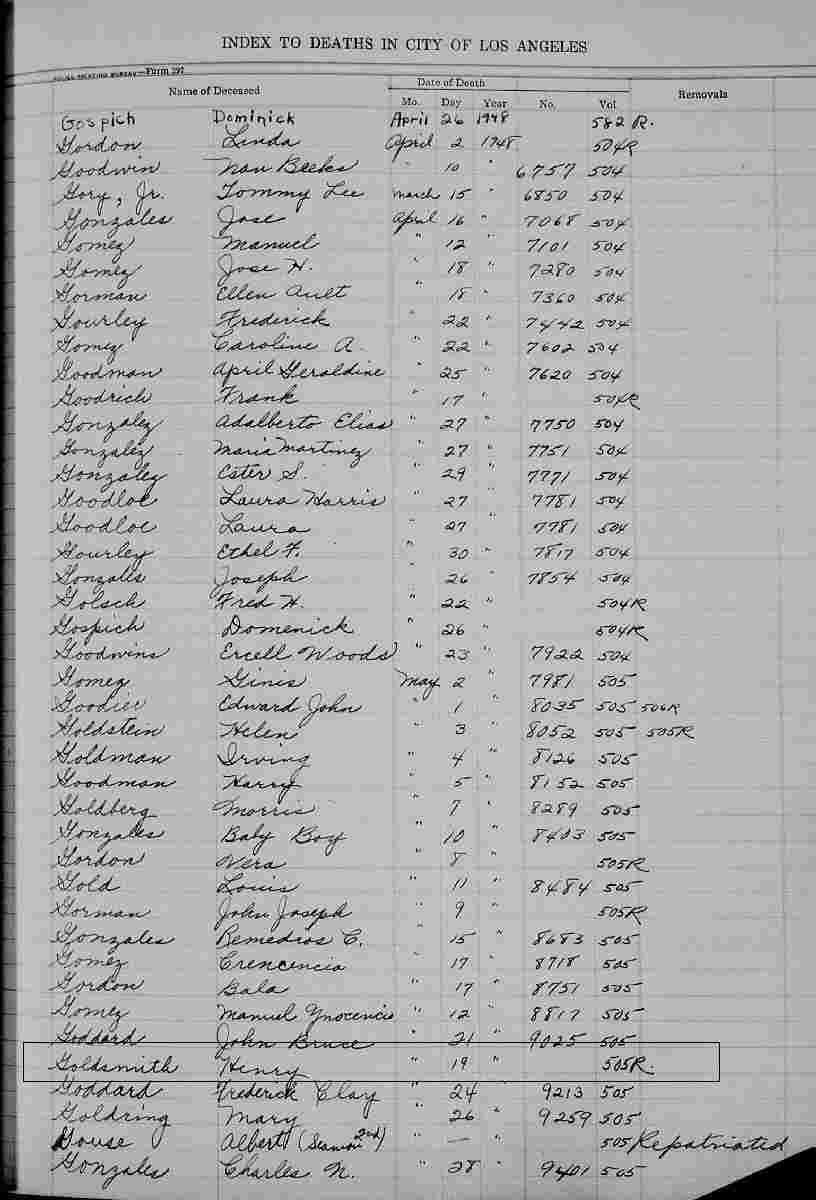 INDEX TO DEATHS IN CITY OF LOS ANGELES
BUREAU—Form 297
Name of Deceased Date of Death Removals
Mo. Day Year No. Vol
Gospich Dominick April 26 1948 582 R.
Gordon Linda April 2 1948 504R
Goodwin Nan Beeks " 10 " 6757 504
Gory, Jr. Tommy Lee March 15 " 6850 504
Gonzales Jose April 16 " 7068 504
Gomez Manuel " 12 " 7101 504
Gomez Jose H. " 18 " 7280 504
Gorman Ellen Ault " 18 " 7360 504
Gourley Frederick " 22 " 7442 504
Gomez Caroline A. " 22 " 7602 504
Goodman April Geraldine " 25 " 7620 504
Goodrich Frank " 17 " 504R
Gonzalez Adalberto Elias " 27 " 7750 504
Gonzalez Maria Martinez " 27 " 7751 504
Gonzalez Ester S. " 29 " 7771 504
Goodloe Laura Harris " 27 " 7781 504
Goodloe Laura " 27 " 7781 504
Gourley Ethel F. " 30 " 7817 504
Gonzales Joseph " 26 " 7854 504
Golsch Fred H. " 22 " 504R
Gospich Domenick " 26 " 504R
Goodwins Ercell Woods " 23 " 7922 504
Gomez Ginis May 2 " 7981 505
Goodier Edward John " 1 " 8035 505 506R
Goldstein Helen " 3 " 8052 505 505R
Goldman Irving " 4 " 8126 505
Goodman Harry " 5 " 8152 505
Goldberg Morris " 7 " 8289 505
Gonzales Baby Boy " 10 " 8403 505
Gordon Vera " 8 " 505R
Gold Louis " 11 " 8484 505
Gorman John Joseph " 9 " 505R
Gonzales Remedios C. " 15 " 8683 505
Gomez Crencencia " 17 " 8718 505
Gordon Bala " 17 " 8751 505
Gomez Manuel Ynocencio " 12 " 8817 505
Goddard John Bruce " 21 " 9025 505
Goldsmith Henry " 19 " 505R.
Goddard Frederick Clay " 24 " 9213 505
Goldring Mary " 26 " 9259 505
Gouse Albert (Seaman 2nd) " — " 505 Repatriated
Gonzales Charles N. " 28 " 9401 505